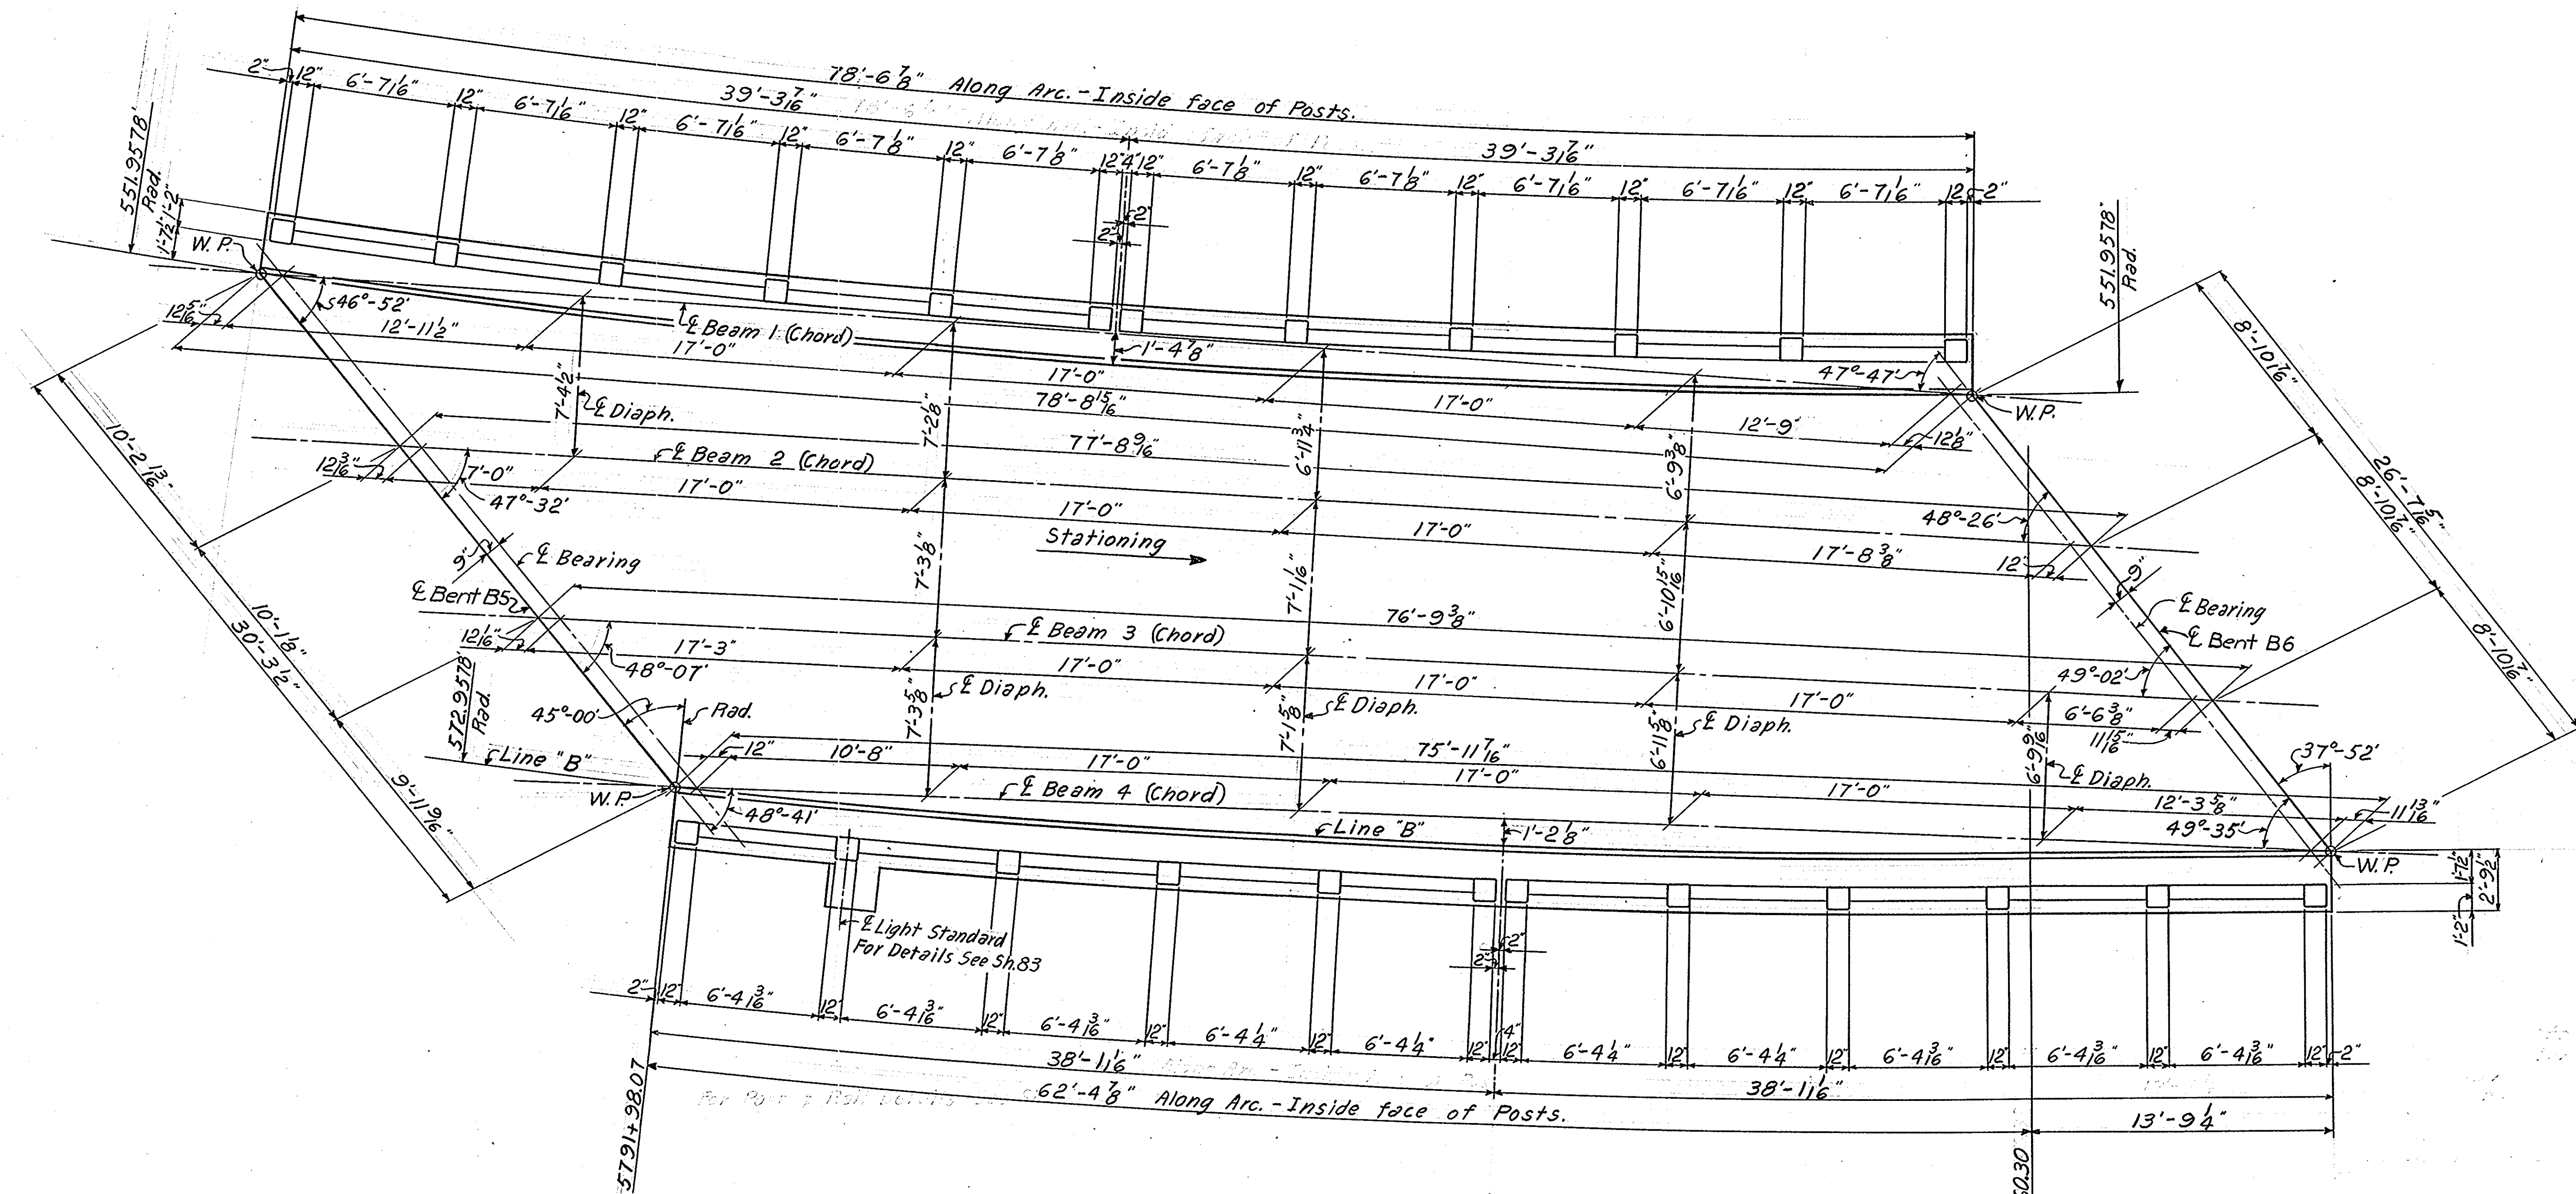 78'-6 7/8" Along Arc.-Inside face of Posts.
39'-3 7/16"
39'-3 7/16"
2" 12" 6'-7 1/16" 12" 6'-7 1/16" 12" 6'-7 1/16" 12" 6'-7 1/8" 12" 6'-7 1/8" 12" 4" 12" 6'-7 1/8" 12" 6'-7 1/8" 12" 6'-7 1/16" 12" 6'-7 1/16" 12" 6'-7 1/16" 12" 2"
551.9578' Rad.
1'-2"
1'-7 1/2"
2"
2"
551.9578' Rad.
W.P.
46°-52'
12 5/16"
12'-11 1/2"
℄ Beam 1 (Chord)
1'-4 7/8"
47°-47'
W.P.
17'-0"
17'-0"
17'-0"
12'-9"
12 1/8"
78'-8 15/16"
7'-4 1/2"
℄ Diaph.
7'-2 1/8"
6'-11 3/4"
6'-9 3/8"
8'-10 7/16"
8'-10 7/16"
8'-10 7/16"
26'-7 5/16"
77'-8 9/16"
℄ Beam 2 (Chord)
12 3/16"
7'-0"
47°-32'
17'-0"
17'-0"
17'-0"
17'-8 3/8"
12"
48°-26'
10'-2 13/16"
10'-1 1/8"
9'-11 9/16"
30'-3 1/2"
Stationing
9"
℄ Bearing
℄ Bent B5
7'-3 1/8"
7'-1 1/16"
6'-10 15/16"
9"
℄ Bearing
℄ Bent B6
76'-9 3/8"
℄ Beam 3 (Chord)
12 1/16"
17'-3"
48°-07'
17'-0"
17'-0"
17'-0"
6'-6 3/8"
11 15/16"
49°-02'
572.9578' Rad.
45°-00'
Rad.
7'-3 5/8"
℄ Diaph.
7'-1 5/8"
℄ Diaph.
6'-11 5/8"
℄ Diaph.
6'-9 9/16"
℄ Diaph.
37°-52'
Line "B"
75'-11 7/16"
12"
10'-8"
17'-0"
17'-0"
17'-0"
12'-3 5/8"
11 13/16"
W.P.
℄ Beam 4 (Chord)
48°-41'
Line "B"
1'-2 1/8"
49°-35'
W.P.
1'-7 1/2"
2'-9 1/2"
1'-2"
℄ Light Standard
For Details See Sh.83
2"
2"
2" 12" 6'-4 3/16" 12" 6'-4 3/16" 12" 6'-4 3/16" 12" 6'-4 1/4" 12" 6'-4 1/4" 12" 4" 12" 6'-4 1/4" 12" 6'-4 1/4" 12" 6'-4 3/16" 12" 6'-4 3/16" 12" 6'-4 3/16" 12" 2"
38'-1 1/16"
38'-1 1/16"
62'-4 7/8" Along Arc.-Inside face of Posts.
13'-9 1/4"
5791+98.07
60.30